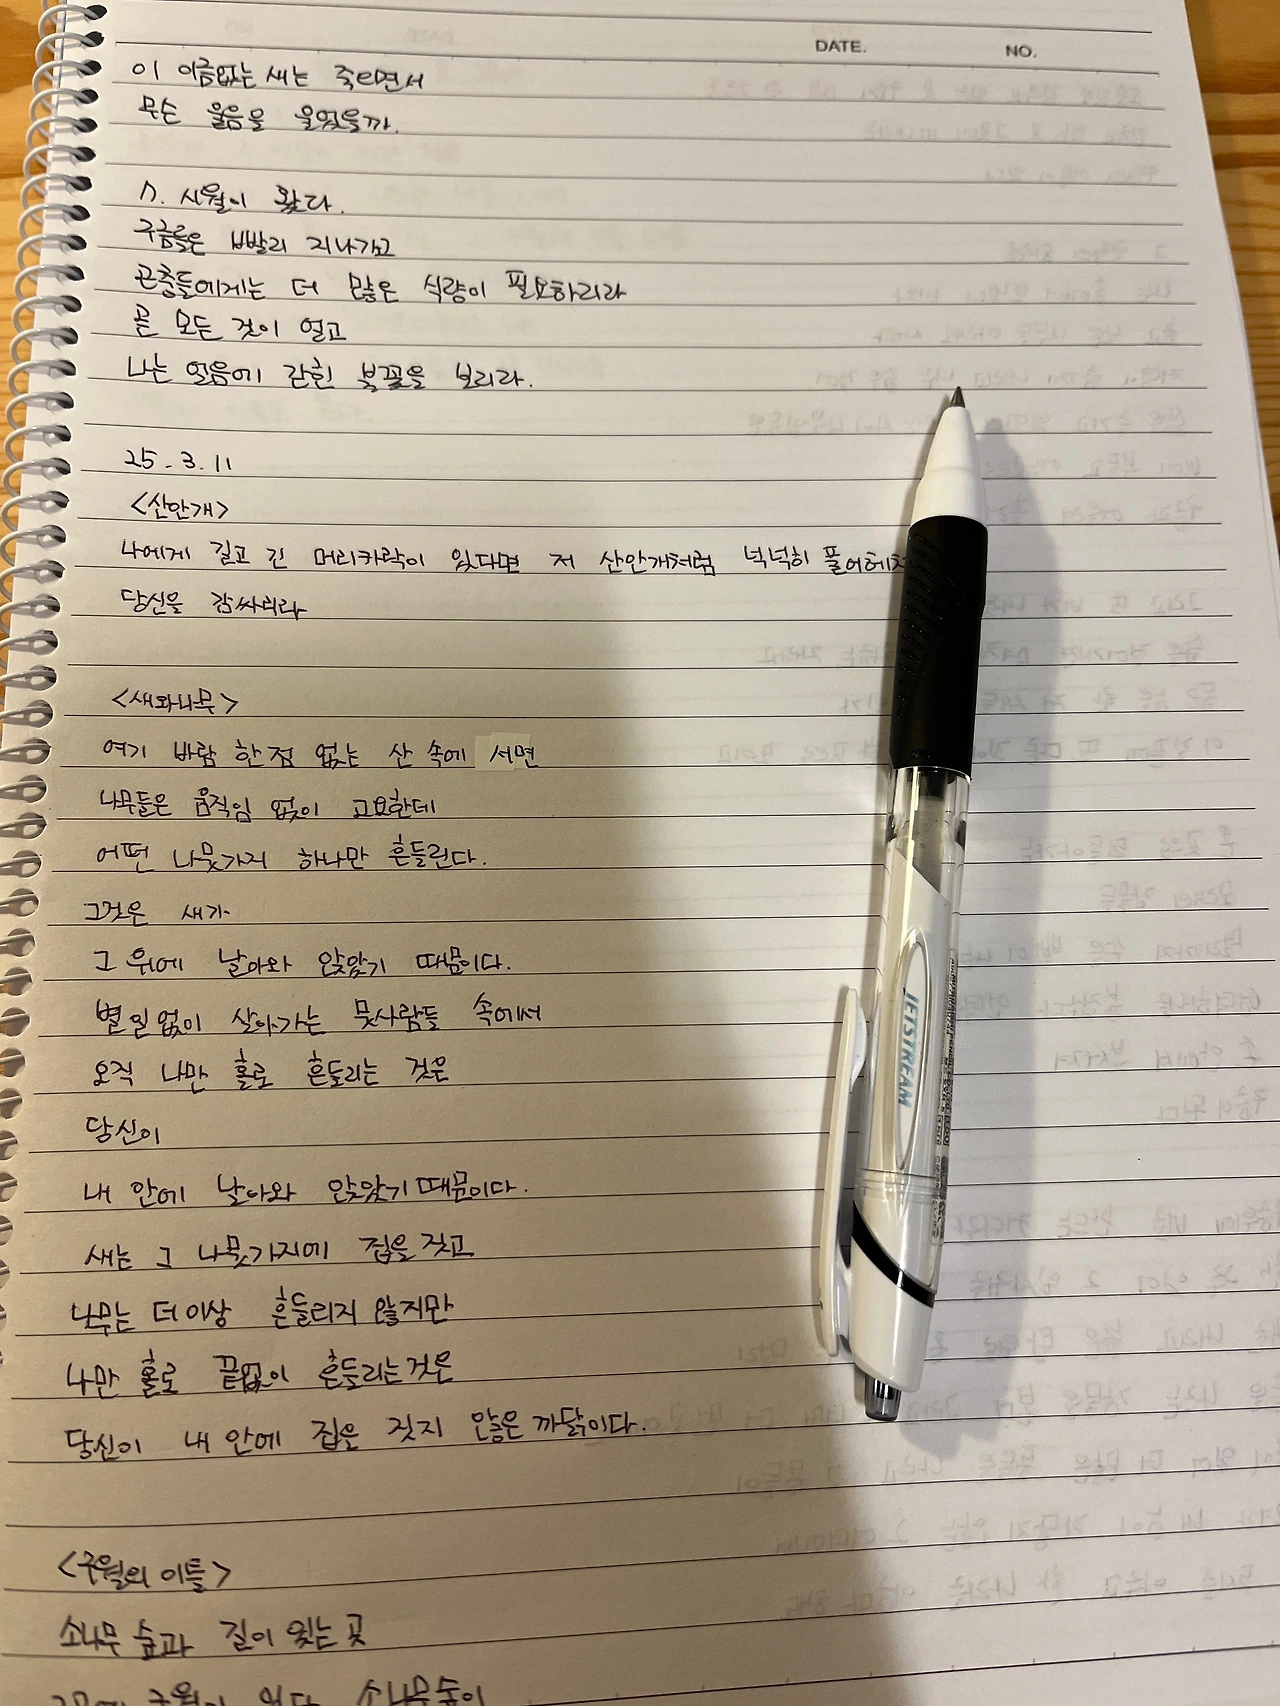 DATE. NO.
이 이름없는 새는 죽으면서
무슨 울음을 울었을까.
7. 시월이 왔다.
구름들은 빨리 지나가고
곤충들에게는 더 많은 식량이 필요하리라
곧 모든 것이 얼고
나는 얼음에 갇힌 불꽃을 보리라.
25.3.11
<산안개>
나에게 길고 긴 머리카락이 있다면 저 산안개처럼 넉넉히 풀어헤쳐
당신을 감싸리라
<새와나무>
여기 바람 한점 없는 산 속에 서면
나무들은 움직임 없이 고요한데
어떤 나뭇가지 하나만 흔들린다.
그것은 새가
그 위에 날아와 앉았기 때문이다.
별일없이 살아가는 뭇사람들 속에서
오직 나만 홀로 흔들리는 것은
당신이
내 안에 날아와 앉았기 때문이다.
새는 그 나뭇가지에 집을 짓고
나무는 더이상 흔들리지 않지만
나만 홀로 끝없이 흔들리는것은
당신이 내 안에 집은 짓지 않은 까닭이다.
<구월의 이틀>
소나무 숲과 길이 있는 곳
구월이 소나무숲이
JETSTREAM